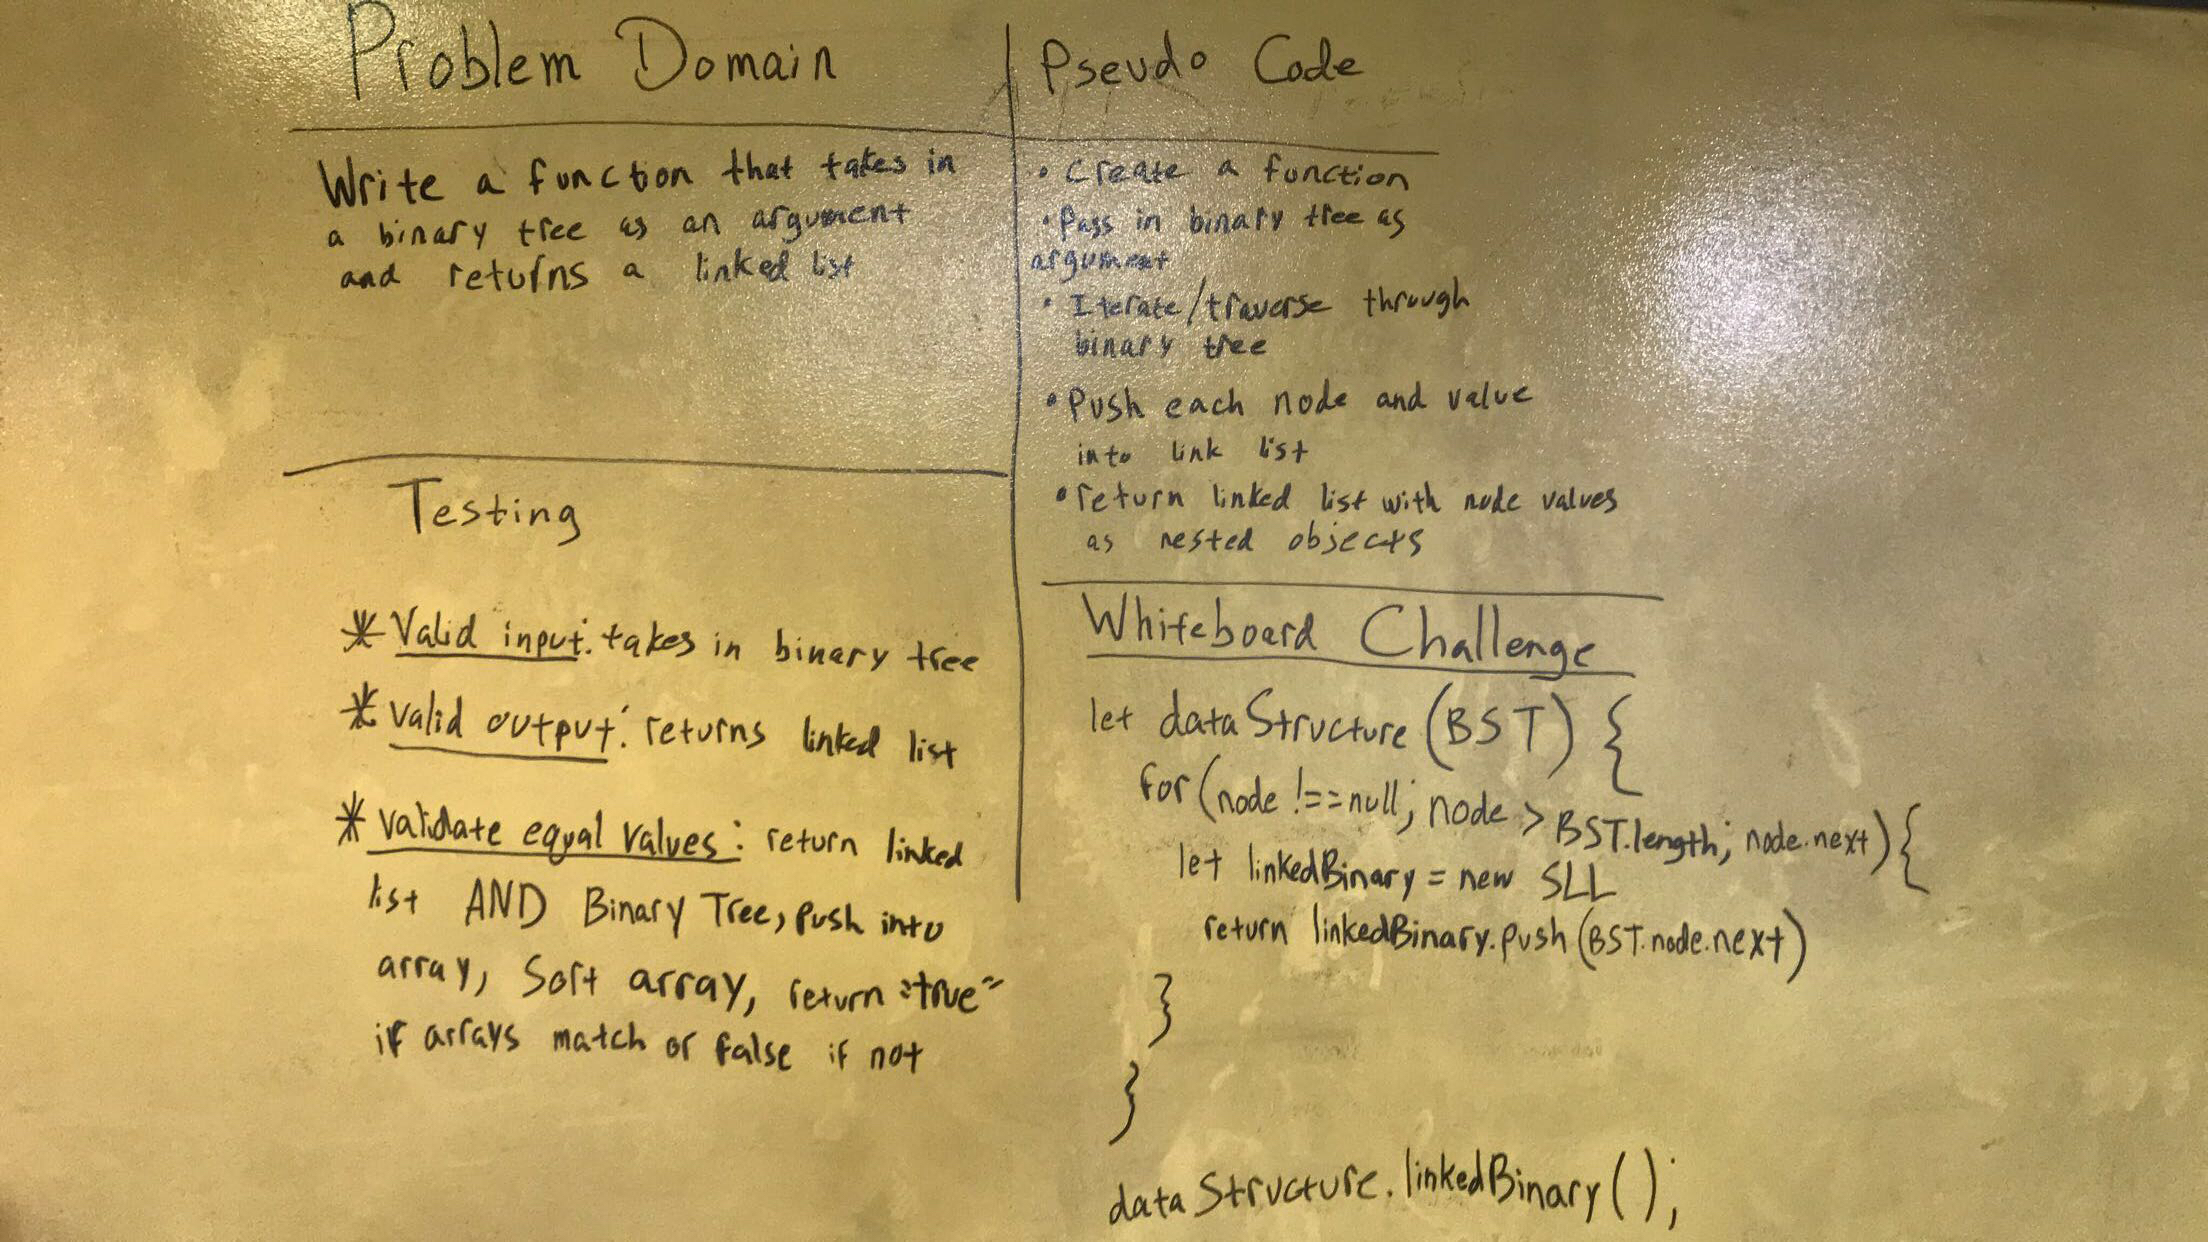 Problem Domain
Write a function that takes in
a binary tree as an argument
and returns a linked list
Testing
* Valid input: takes in binary tree
* Valid output: returns linked list
* Validate equal values: return linked
list AND Binary Tree, push into
array, Sort array, return "true"
if arrays match or false if not
Pseudo Code
• Create a function
• Pass in binary tree as
argument
• Iterate/traverse through
binary tree
• Push each node and value
into link list
• return linked list with node values
as nested objects
Whiteboard Challenge
let dataStructure (BST) {
for (node !== null; node > BST.length; node.next) {
let linkedBinary = new SLL
return linkedBinary.push(BST.node.next)
}
}
dataStructure.linkedBinary();